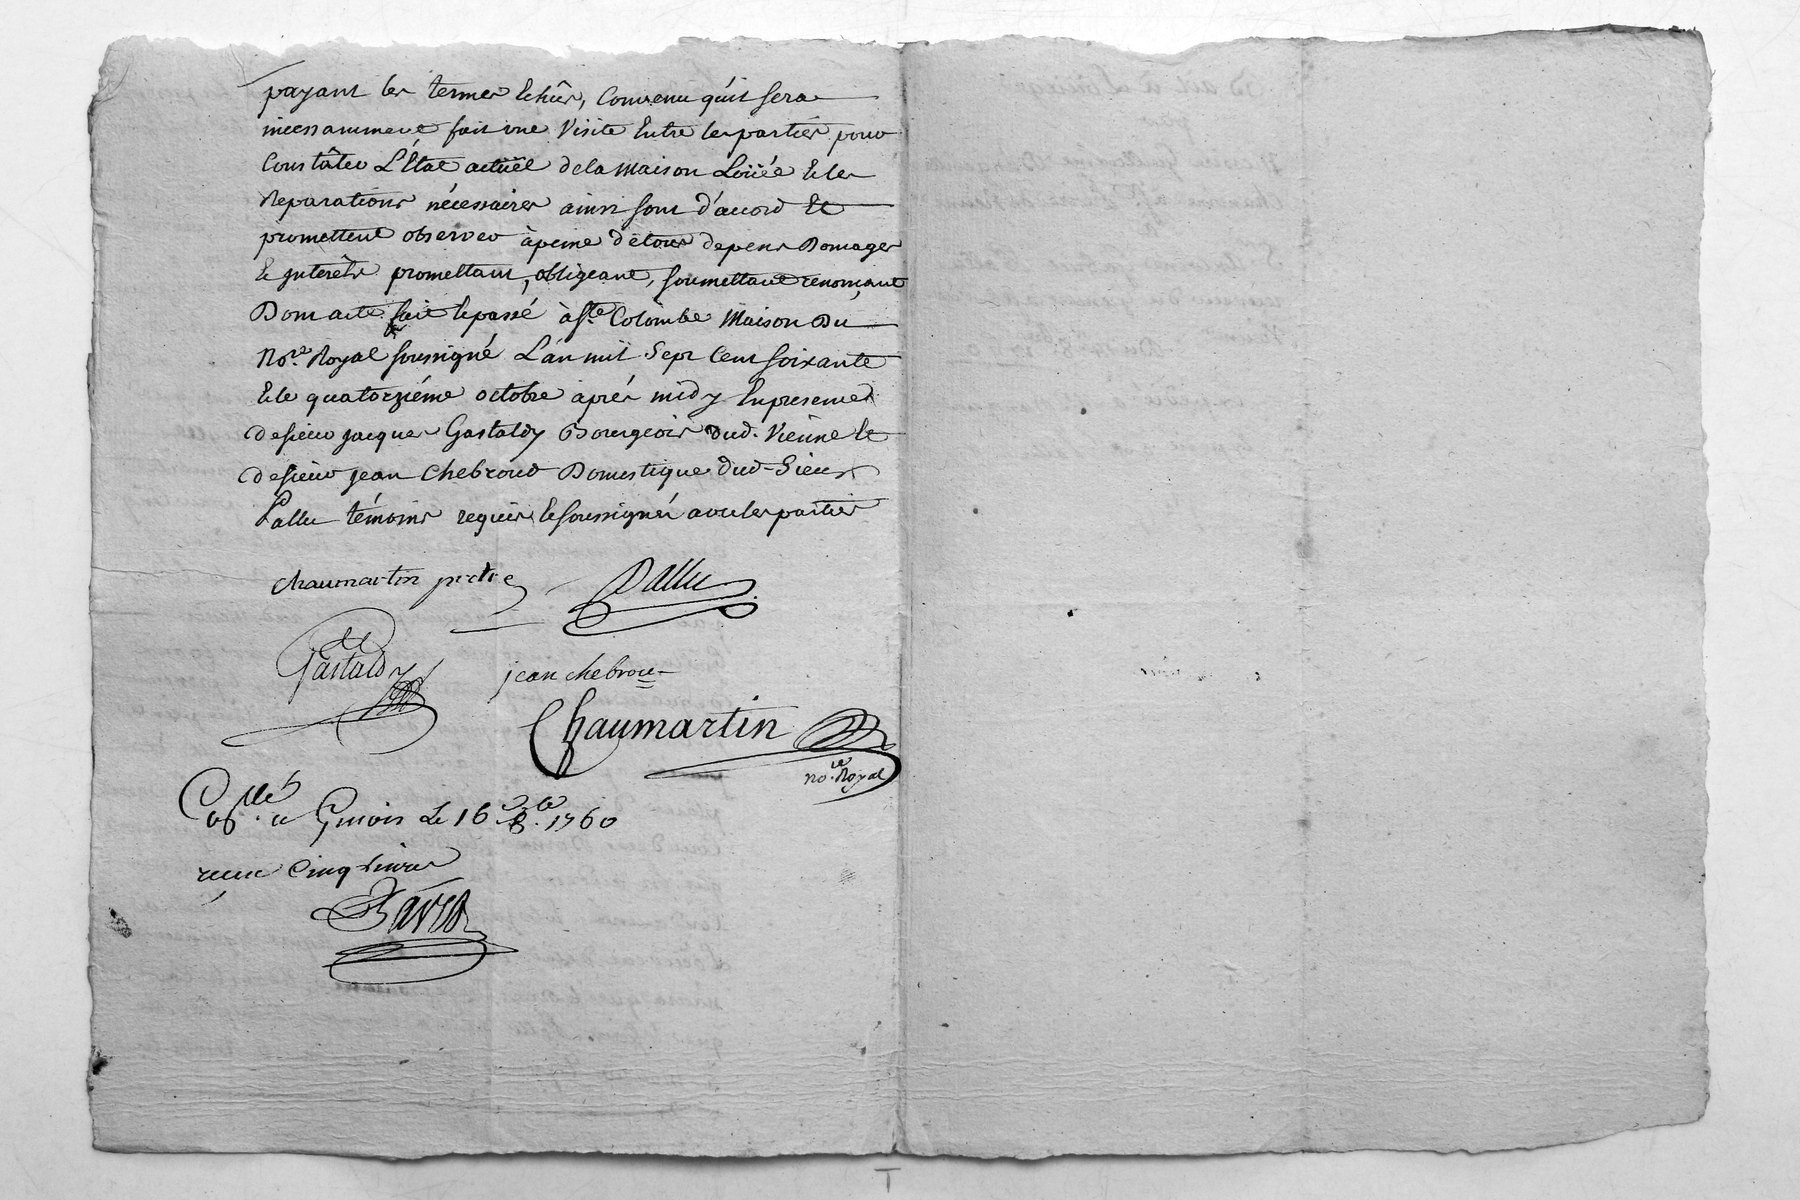 payant les termes Echûs, Convenu qu'il sera
incessamment fait une Visite Entre les parties pour
Constâter L'Etat actuël de la Maison Loüée Et les
Reparations nécessaires ainsi sont d'accord Et
promettent observer à peine de tous depens Domages
Et Interêts promettant, obligeant, soumettant renonçant
Dont acte fait Et passé à Ste Colombe Maison Du
No.re Royal soussigné L'an mil Sept Cent soixante
Et le quatorziéme octobre aprés midy En presence
de sieur jacques Gastaldy Bourgeois dud. Vienne Et
de sieur jean Chebroud Domestique dud. Sieur
Pallu témoins requis Et soussignés avec les parties
chaumartin prêtre Pallu
Gastaldy jean chebrou
Chaumartin
no.re Royal
Con.llé a Givors Le 16 8.bre 1760
recu Cinq livres